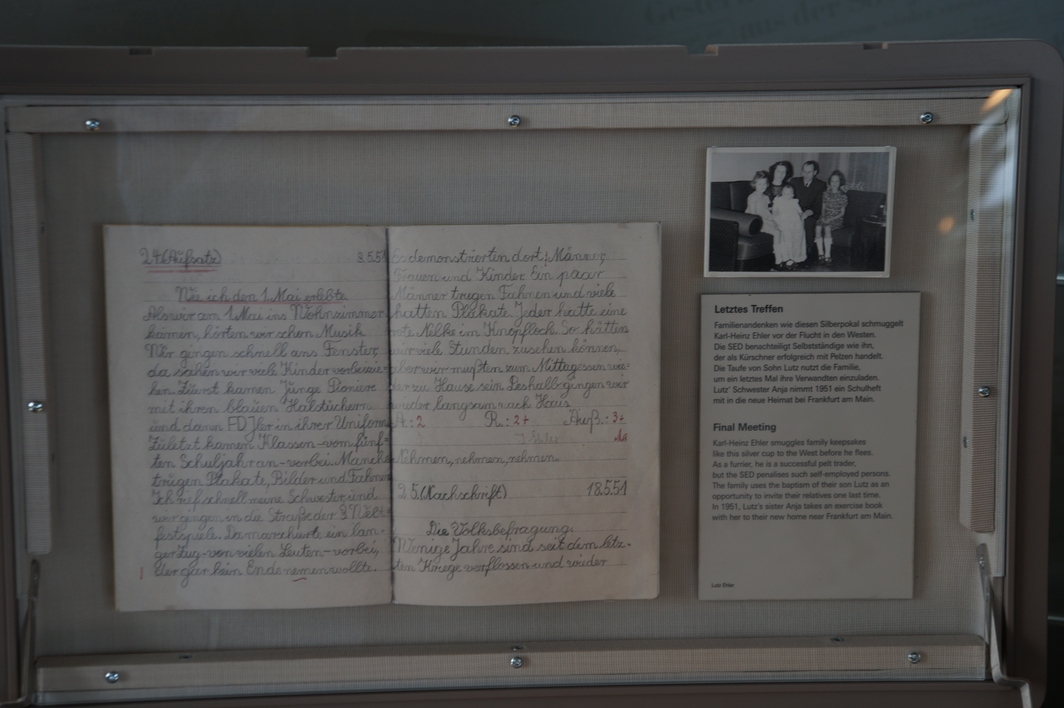 24.(Aufsatz) 8.5.51
Wie ich den 1. Mai erlebte
Als wir am 1. Mai ins Wohnzimmer
kamen, hörten wir schon Musik.
Wir gingen schnell ans Fenster,
da sahen wir viele Kinder vorbeizie-
hen. Zuerst kamen Junge Pioniere
mit ihren blauen Halstüchern
und dann FDJler in ihrer Uniform.
Zuletzt kamen Klassen vom fünf-
ten Schuljahr an vorbei. Manche
trugen Plakate, Bilder und Fahnen.
Ich rief schnell meine Schwester und
wir gingen in die Straße der
festspiele. Da marschierte ein lan-
ger Zug von vielen Leuten vorbei,
der gar kein Ende nemen wollte.
Es demonstrierten dort: Männer,
Frauen und Kinder. Ein paar
Männer trugen Fahnen und viele
hatten Plakate. Jeder hatte eine
rote Nelke im Knopfloch. So hätten
wir viele Stunden zusehen können,
aber wir mußten zum Mittagessen wie-
der zu Hause sein. Deshalb gingen wir
wieder langsam nach Haus.
A.: 2 R.: 2+ Auß.: 3+
Nehmen, nehmen, nehmen.
25.(Nachschrift) 18.5.51
Die Volksbefragung.
Wenige Jahre sind seit dem letz-
ten Kriege verflossen und wieder
Letztes Treffen
Familienandenken wie diesen Silberpokal schmuggelt
Karl-Heinz Ehler vor der Flucht in den Westen.
Die SED benachteiligt Selbstständige wie ihn,
der als Kürschner erfolgreich mit Pelzen handelt.
Die Taufe von Sohn Lutz nutzt die Familie,
um ein letztes Mal ihre Verwandten einzuladen.
Lutz' Schwester Anja nimmt 1951 ein Schulheft
mit in die neue Heimat bei Frankfurt am Main.
Final Meeting
Karl-Heinz Ehler smuggles family keepsakes
like this silver cup to the West before he flees.
As a furrier, he is a successful pelt trader,
but the SED penalises such self-employed persons.
The family uses the baptism of their son Lutz as an
opportunity to invite their relatives one last time.
In 1951, Lutz's sister Anja takes an exercise book
with her to their new home near Frankfurt am Main.
Lutz Ehler